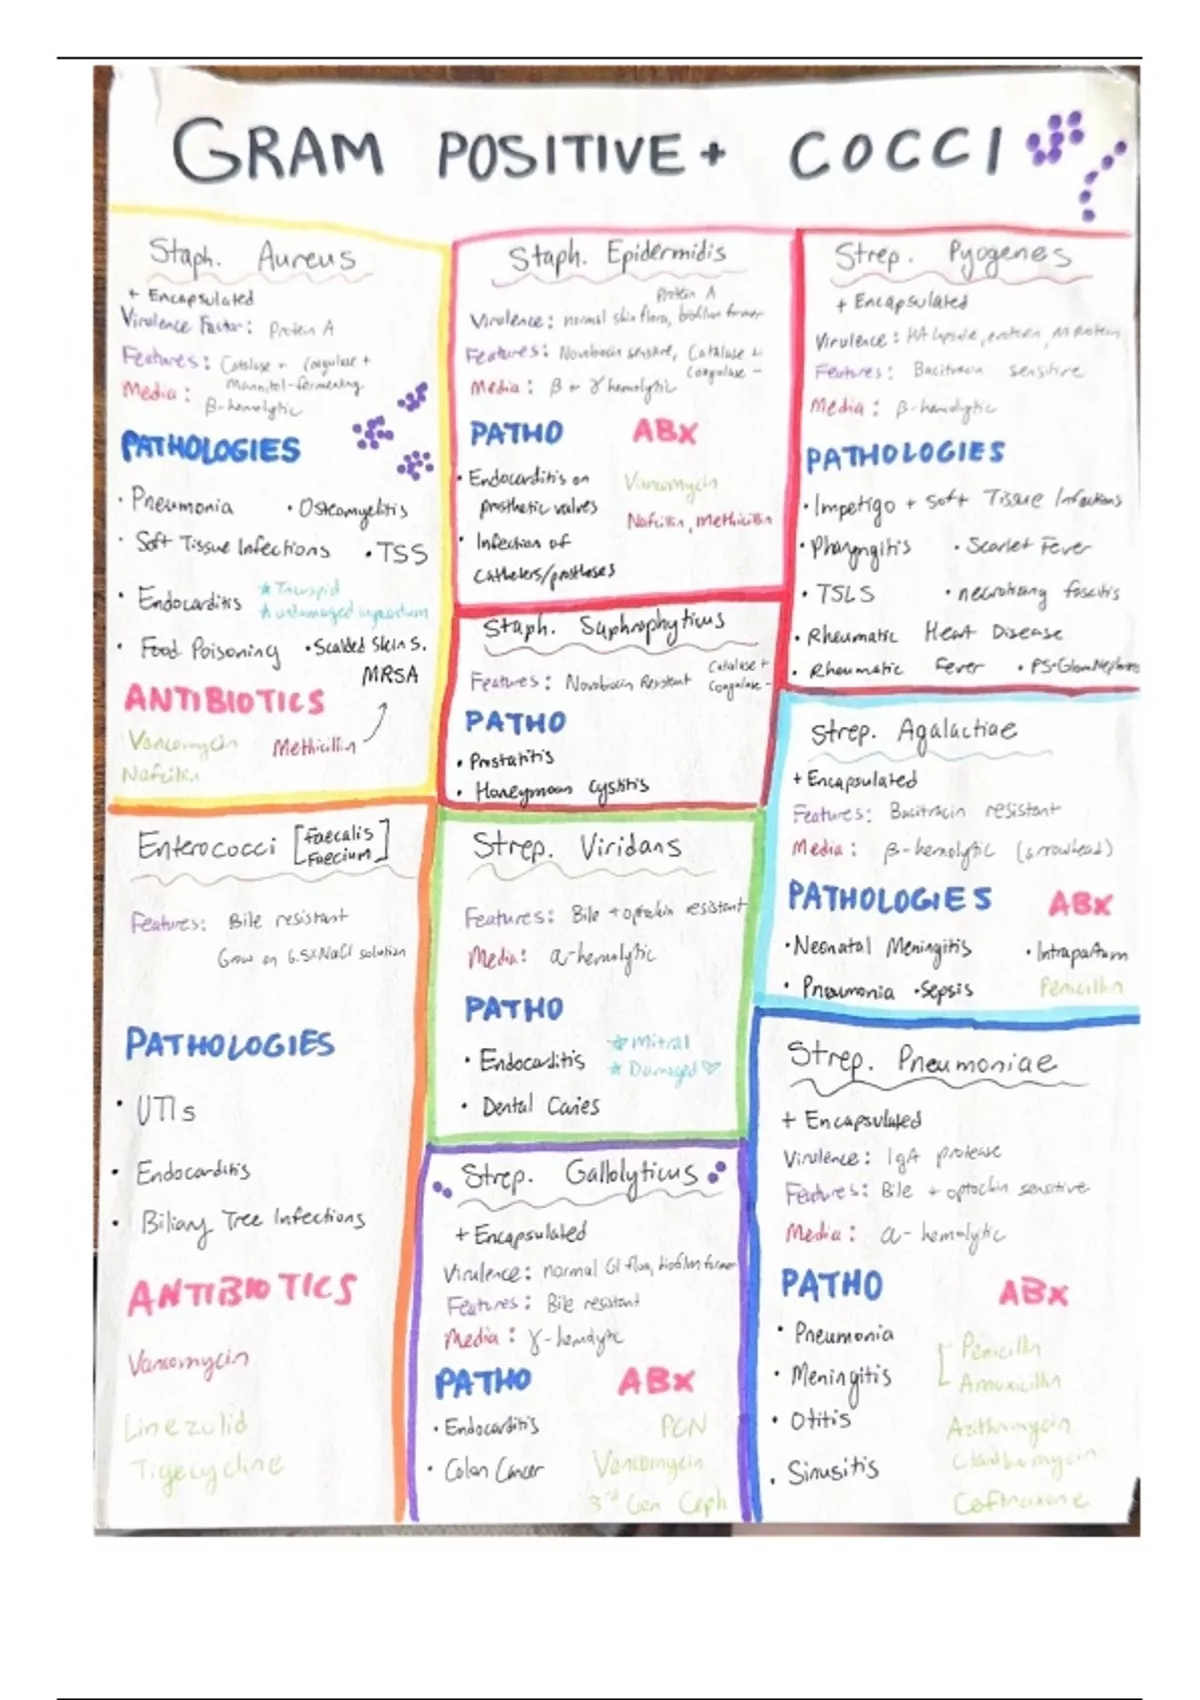 GRAM POSITIVE + COCCI
Staph. Aureus
+ Encapsulated
Virulence Factor: Protein A
Features: Catalase + Coagulase +
Mannitol-fermenting
Media: β-hemolytic
PATHOLOGIES
• Pneumonia • Osteomyelitis
• Soft Tissue Infections • TSS
• Endocarditis
• Food Poisoning • Scalded Skin S.
MRSA
ANTIBIOTICS
Vancomycin Methicillin
Nafcillin
Enterococci [Faecalis
Faecium]
Features: Bile resistant
Grow on 6.5% NaCl solution
PATHOLOGIES
• UTIs
• Endocarditis
• Biliary Tree Infections
ANTIBIOTICS
Vancomycin
Linezolid
Tigecycline
Staph. Epidermidis
Protein A
Virulence: normal skin flora, biofilm former
Features: Novobiocin sensitive, Catalase +
Coagulase -
Media: β or γ hemolytic
PATHO ABx
• Endocarditis on
prosthetic valves
• Infection of
catheters/prostheses
Vancomycin
Nafcillin, Methicillin
Staph. Saphrophyticus
Catalase +
Features: Novobiocin Resistant Coagulase -
PATHO
• Prostatitis
• Honeymoon Cystitis
Strep. Viridans
Features: Bile + optochin resistant
Media: α-hemolytic
PATHO
• Endocarditis
★ Mitral
★ Damaged ♡
• Dental Caries
Strep. Gallolyticus
+ Encapsulated
Virulence: normal GI flora, biofilm former
Features: Bile resistant
Media: γ-hemolytic
PATHO ABx
• Endocarditis PCN
• Colon Cancer Vancomycin
3rd Gen Ceph
Strep. Pyogenes
+ Encapsulated
Virulence: HA capsule, M protein
Features: Bacitracin sensitive
Media: β-hemolytic
PATHOLOGIES
• Impetigo + Soft Tissue Infections
• Pharyngitis • Scarlet Fever
• TSLS • necrotizing fasciitis
• Rheumatic Heart Disease
• Rheumatic Fever
Strep. Agalactiae
+ Encapsulated
Features: Bacitracin resistant
Media: β-hemolytic (arrowhead)
PATHOLOGIES ABx
• Neonatal Meningitis • Intrapartum
• Pneumonia • Sepsis Penicillin
Strep. Pneumoniae
+ Encapsulated
Virulence: IgA protease
Features: Bile + optochin sensitive
Media: α-hemolytic
PATHO ABx
• Pneumonia
• Meningitis
• Otitis
• Sinusitis
Penicillin
Amoxicillin
Azithromycin
Ceftriaxone